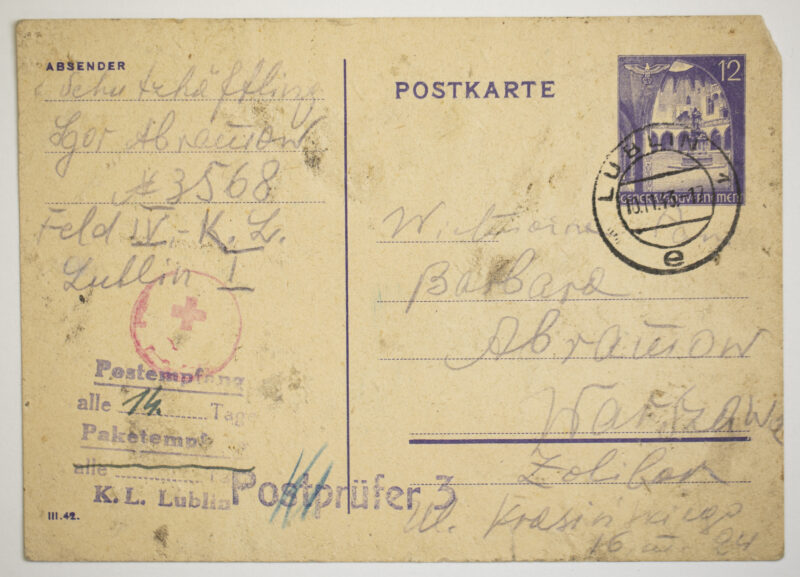 ABSENDER
Schutzhäftling
Igor Abramow
№ 3568
Feld IV - K. L.
Lublin I
Postempfang
alle 14. Tage
Paketempf
alle
K. L. Lublin
III.42.
POSTKARTE
12
GENERALGOUVERNEMENT
LUBLIN 1
e
Barbara
Abramow
Warszawa
Żolibor
Ul.
16 m 24
Postprüfer 3